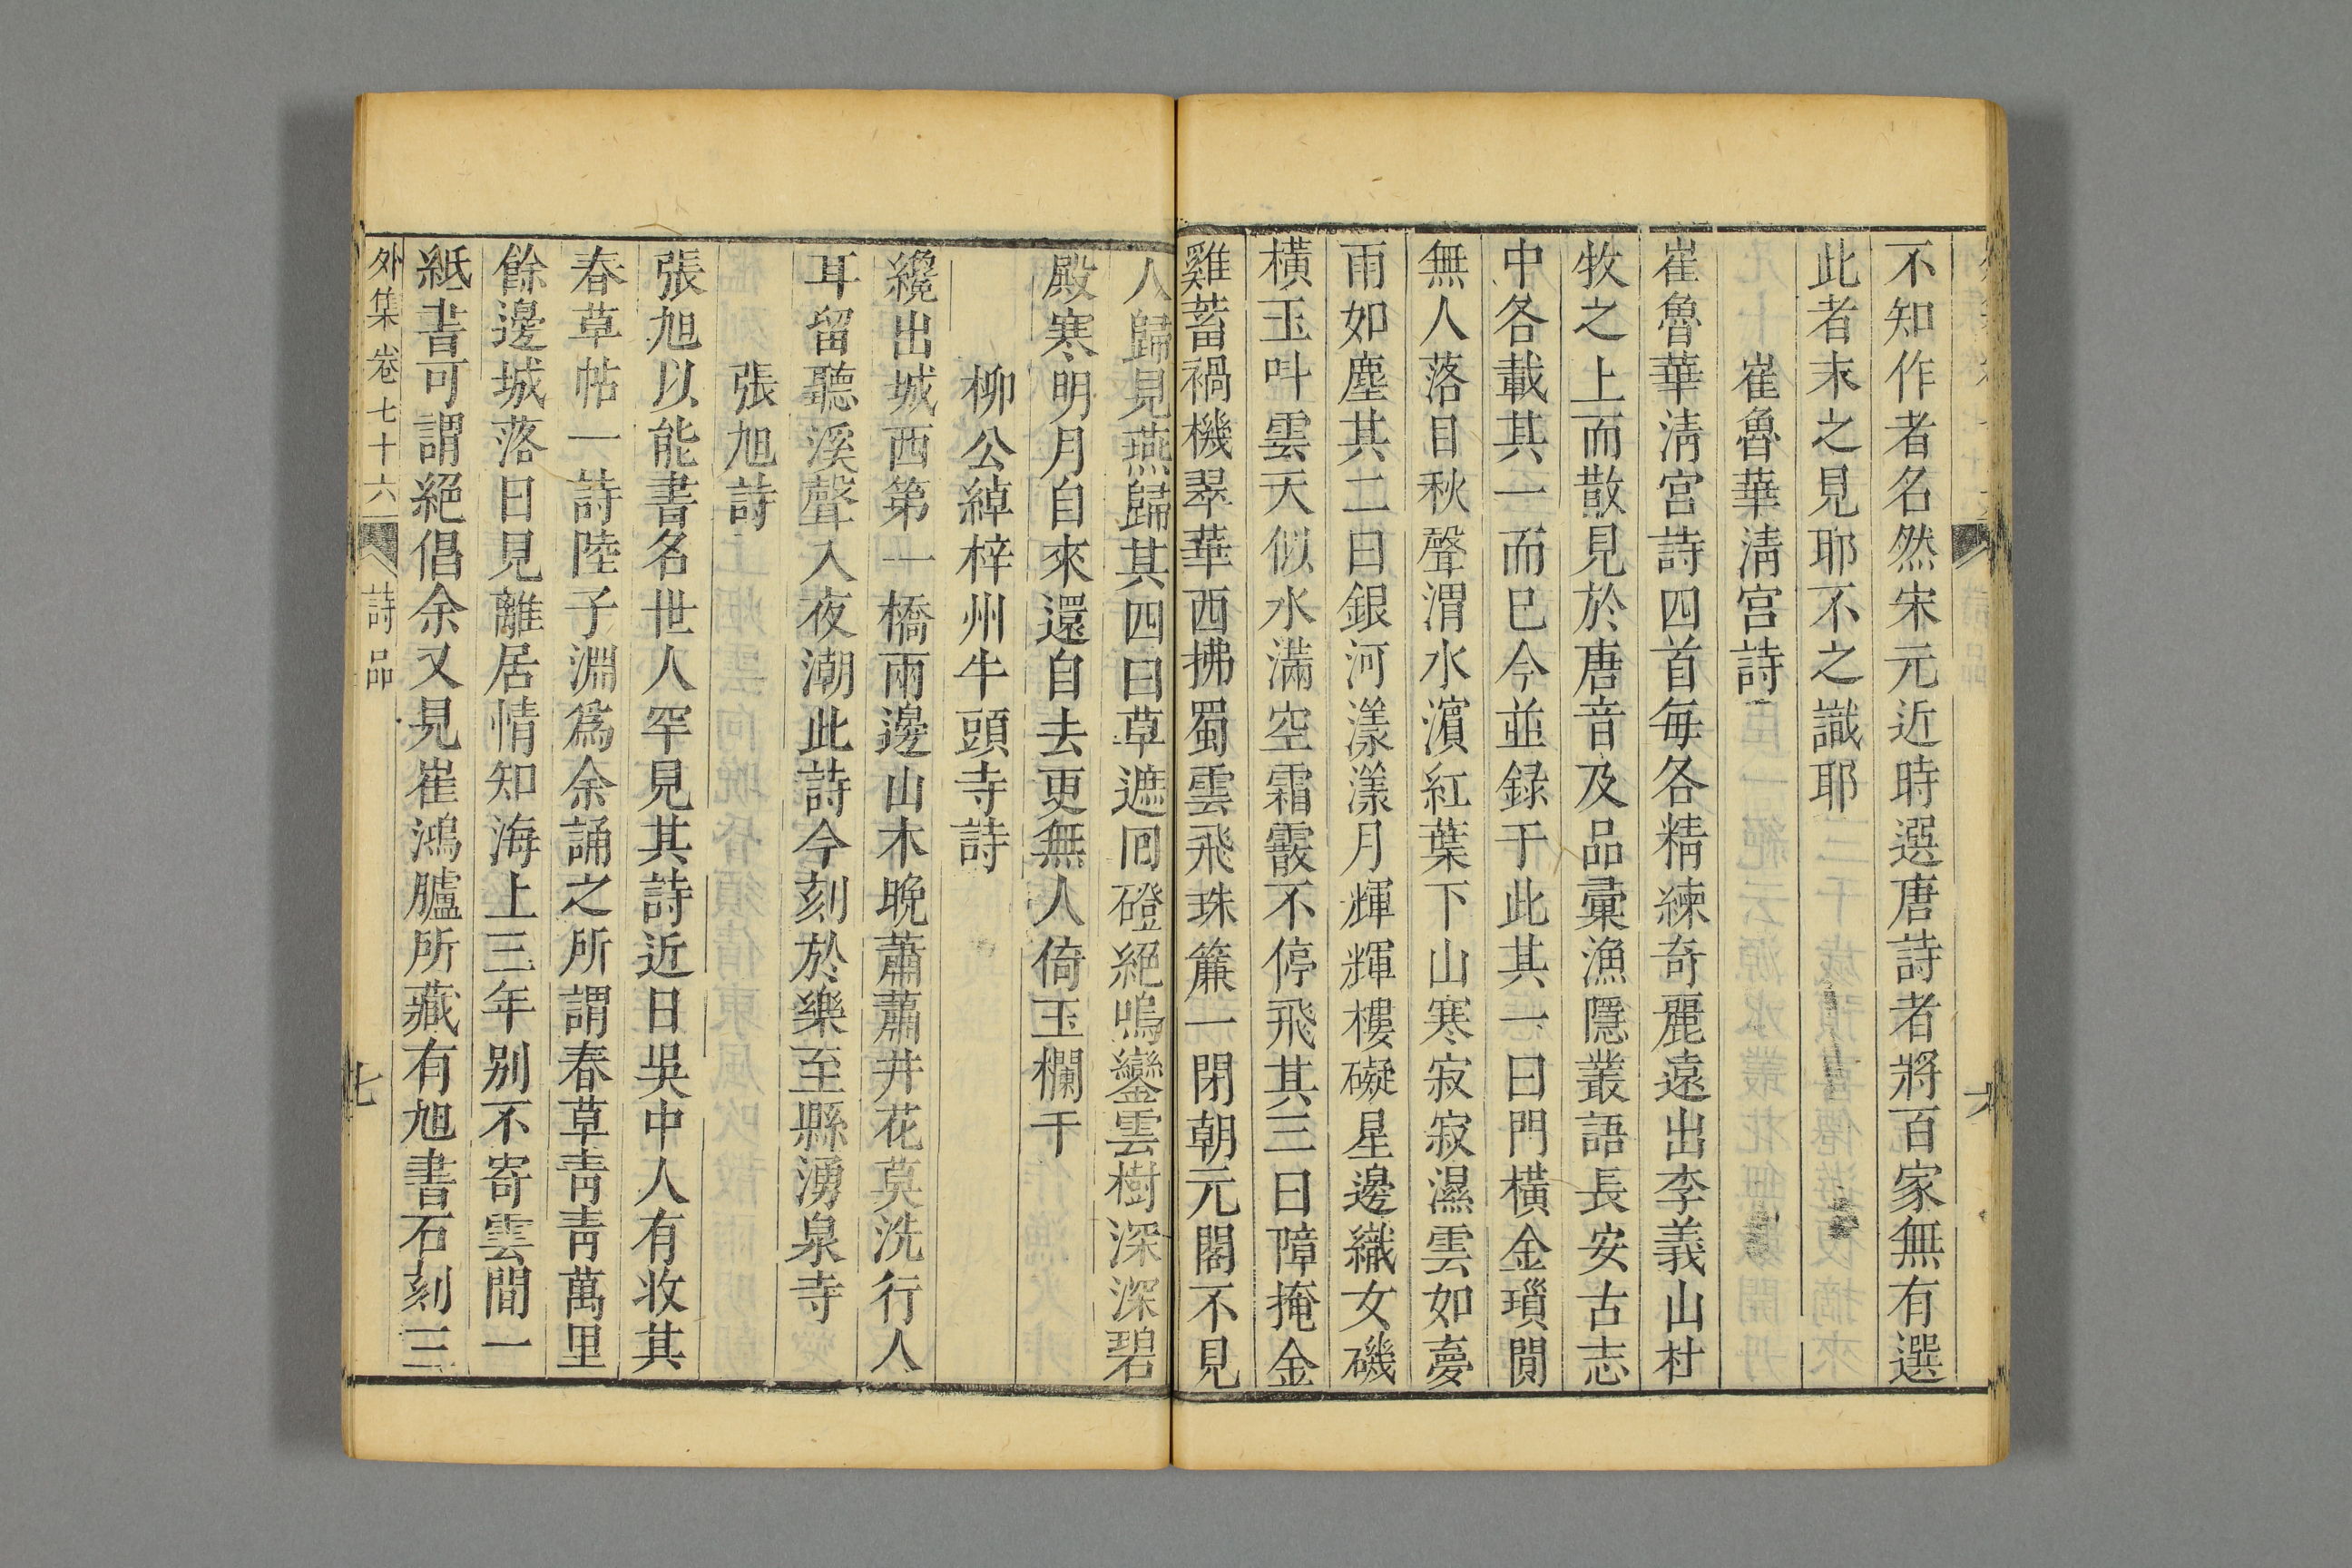 不知作者名然宋元近時選唐詩者將百家無有選
此者末之見耶不之識耶
崔魯華淸宮詩
崔魯華淸宮詩四首每各精練奇麗遠出李義山杜
牧之上而散見於唐音及品彙漁隱叢語長安古志
中各載其一而已今並録于此其一曰門橫金瑣閴
無人落日秋聲渭水濵紅葉下山寒寂寂濕雲如夢
雨如塵其二曰銀河漾漾月輝輝樓礙星邊織女磯
橫玉叫雲天似水滿空霜霰不停飛其三曰障掩金
雞蓄禍機翠華西拂蜀雲飛珠簾一閉朝元閣不見
人歸見燕歸其四曰草遮囘磴絕鳴鑾雲樹深深碧
殿寒明月自來還自去更無人倚玉欄干
柳公綽梓州牛頭寺詩
纔出城西第一橋兩邊山木晚蕭蕭井花莫洗行人
耳留聽溪聲入夜潮此詩今刻於樂至縣湧泉寺
張旭詩
張旭以能書名世人罕見其詩近日吳中人有收其
春草帖一詩陸子淵爲余誦之所謂春草靑靑萬里
餘邊城落日見離居情知海上三年别不寄雲間一
紙書可謂絕倡余又見崔鴻臚所藏有旭書石刻三
外集卷七十六 詩品 七